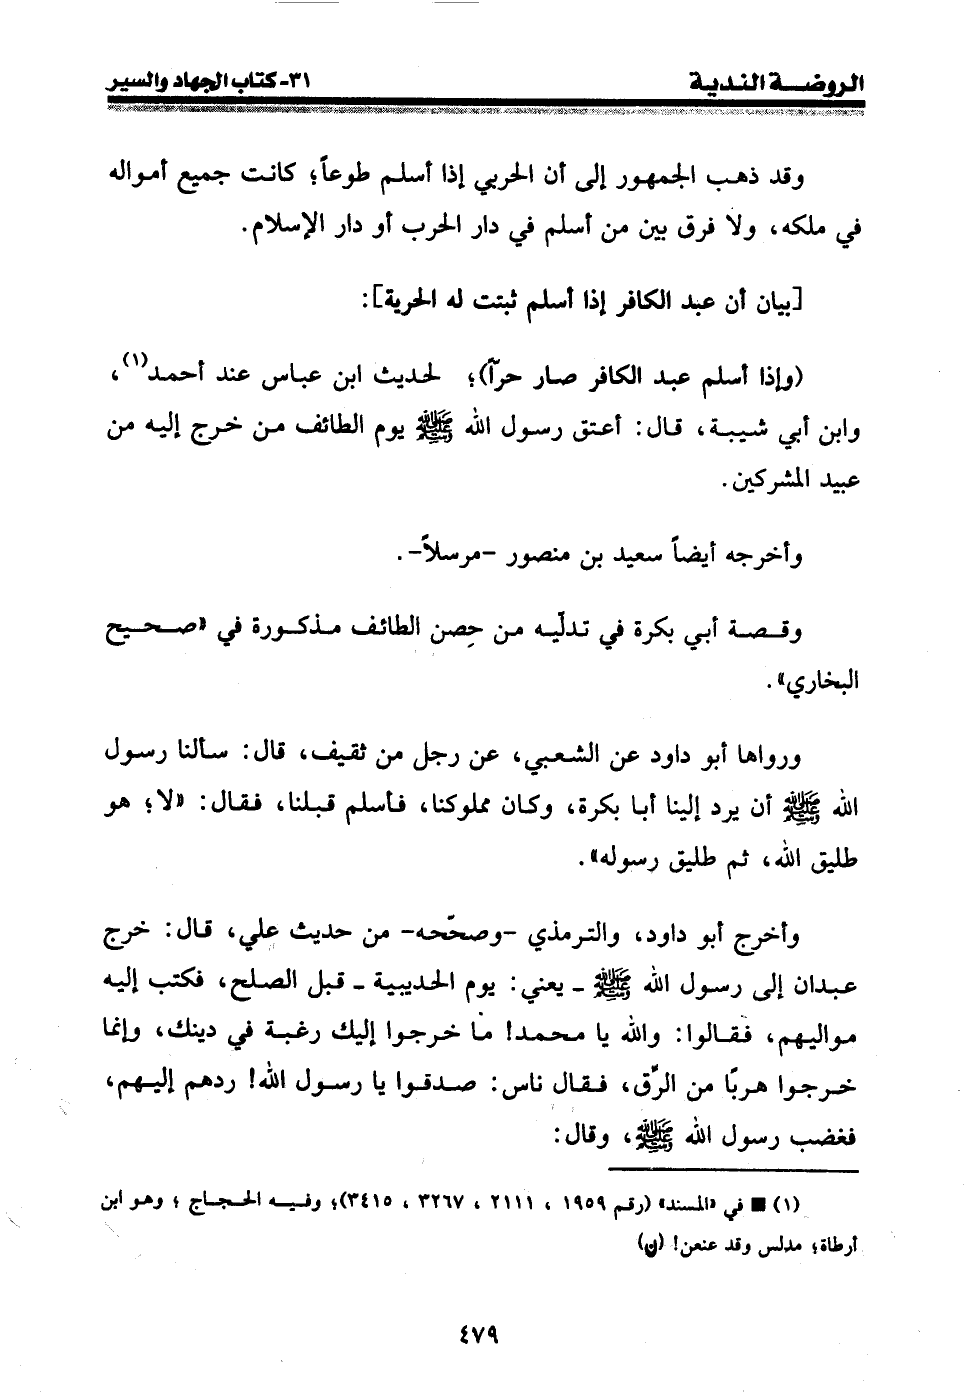 الروضة الندية
٣١- كتاب الجهاد والسير
وقد ذهب الجمهور إلى أن الحربي إذا أسلم طوعاً؛ كانت جميع أمواله
في ملكه، ولا فرق بين من أسلم في دار الحرب أو دار الإسلام.
[بيان أن عبد الكافر إذا أسلم ثبتت له الحرية]:
(وإذا أسلم عبد الكافر صار حرّاً)؛ لحديث ابن عباس عند أحمد(١)،
وابن أبي شيبة، قال: أعتق رسول الله ﷺ يوم الطائف من خرج إليه من
عبيد المشركين.
وأخرجه أيضاً سعيد بن منصور -مرسلاً-.
وقصة أبي بكرة في تدلّيه من حِصن الطائف مذكورة في «صحيح
البخاري».
ورواها أبو داود عن الشعبي، عن رجل من ثقيف، قال: سألنا رسول
الله ﷺ أن يرد إلينا أبا بكرة، وكان مملوكنا، فأسلم قبلنا، فقال: «لا؛ هو
طليق الله، ثم طليق رسوله».
وأخرج أبو داود، والترمذي -وصحّحه- من حديث علي، قال: خرج
عبدان إلى رسول الله ﷺ - يعني: يوم الحديبية - قبل الصلح، فكتب إليه
مواليهم، فقالوا: والله يا محمد! ما خرجوا إليك رغبة في دينك، وإنما
خرجوا هربًا من الرِّق، فقال ناس: صدقوا يا رسول الله! ردهم إليهم،
فغضب رسول الله ﷺ، وقال:
(١) ■ في «المسند» (رقم ١٩٥٩ ، ٢١١١ ، ٣٢٦٧ ، ٣٤١٥)؛ وفيه الحجاج ؛ وهو ابن
أرطاة؛ مدلس وقد عنعن! (ن)
٤٧٩